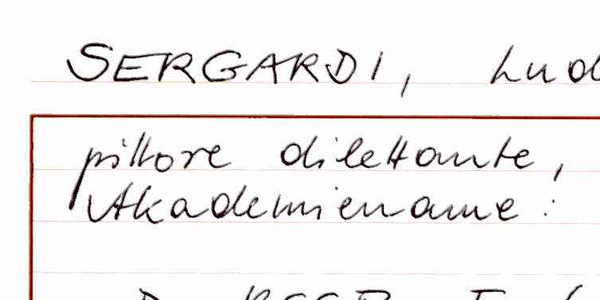 SERGARDI, Lud
pittore dilettante,
Akademiename: